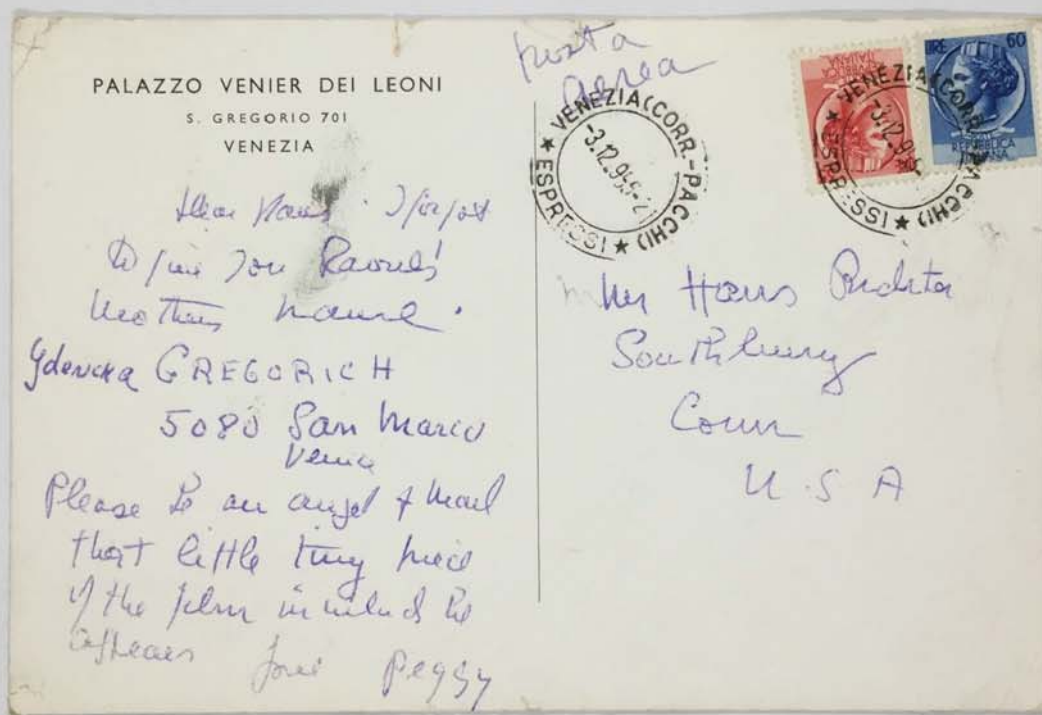 PALAZZO VENIER DEI LEONI
S. GREGORIO 701
VENEZIA
Dear Hans. I forgot
to give you Raoul's
mothers name.
GREGORICH
5080 San Marco
Venice
Please be an angel & mail
that little tiny piece
of the film in which he
appears love Peggy
Posta
Aerea
VENEZIA (CORR.-PACCHI)
★ ESPRESSI ★
-3.12.955-21
LIRE 60
REPUBBLICA
ITALIANA
REPUBBLICA
ITALIANA
VENEZIA (CORR.-PACCHI)
★ ESPRESSI ★
-3.12.95
Mr Hans Richter
Southbury
Conn
U.S A